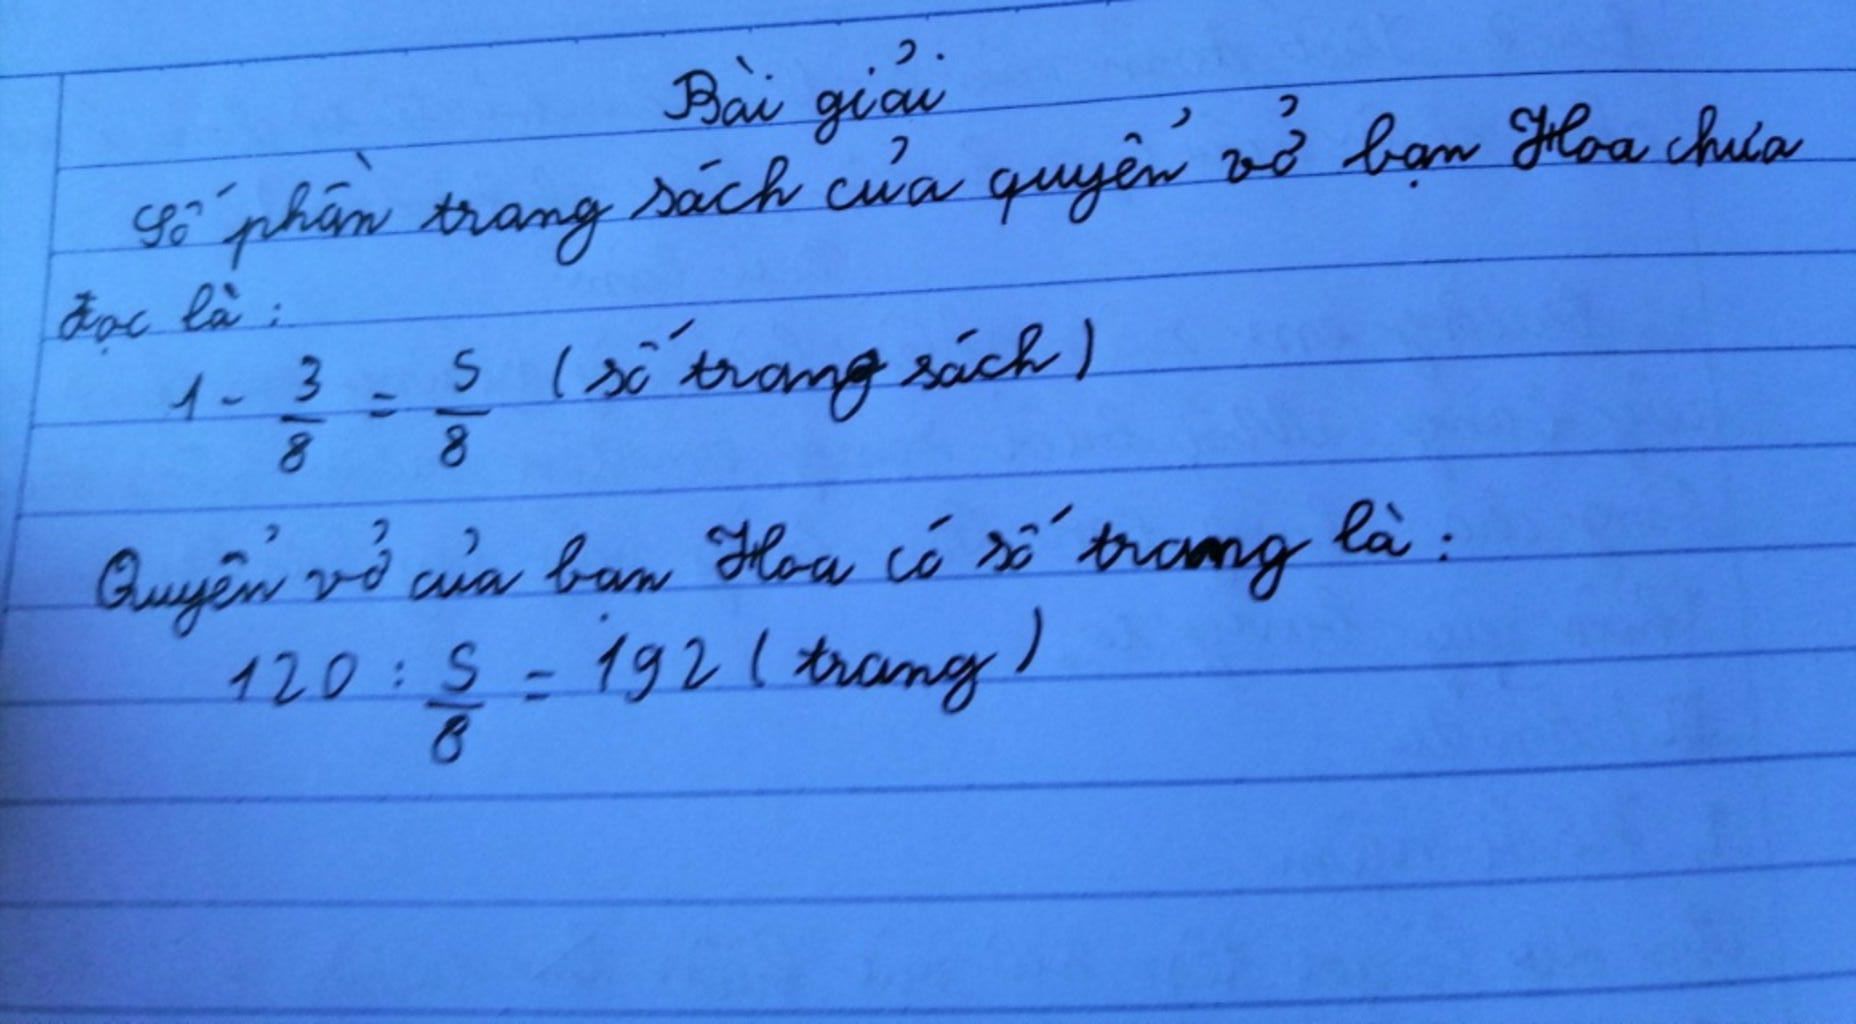 Bài giải
Số phần trang sách của quyển vở bạn Hoa chưa
đọc là:
1 - 3/8 = 5/8 (số trang sách)
Quyển vở của bạn Hoa có số trang là:
120 : 5/8 = 192 (trang)